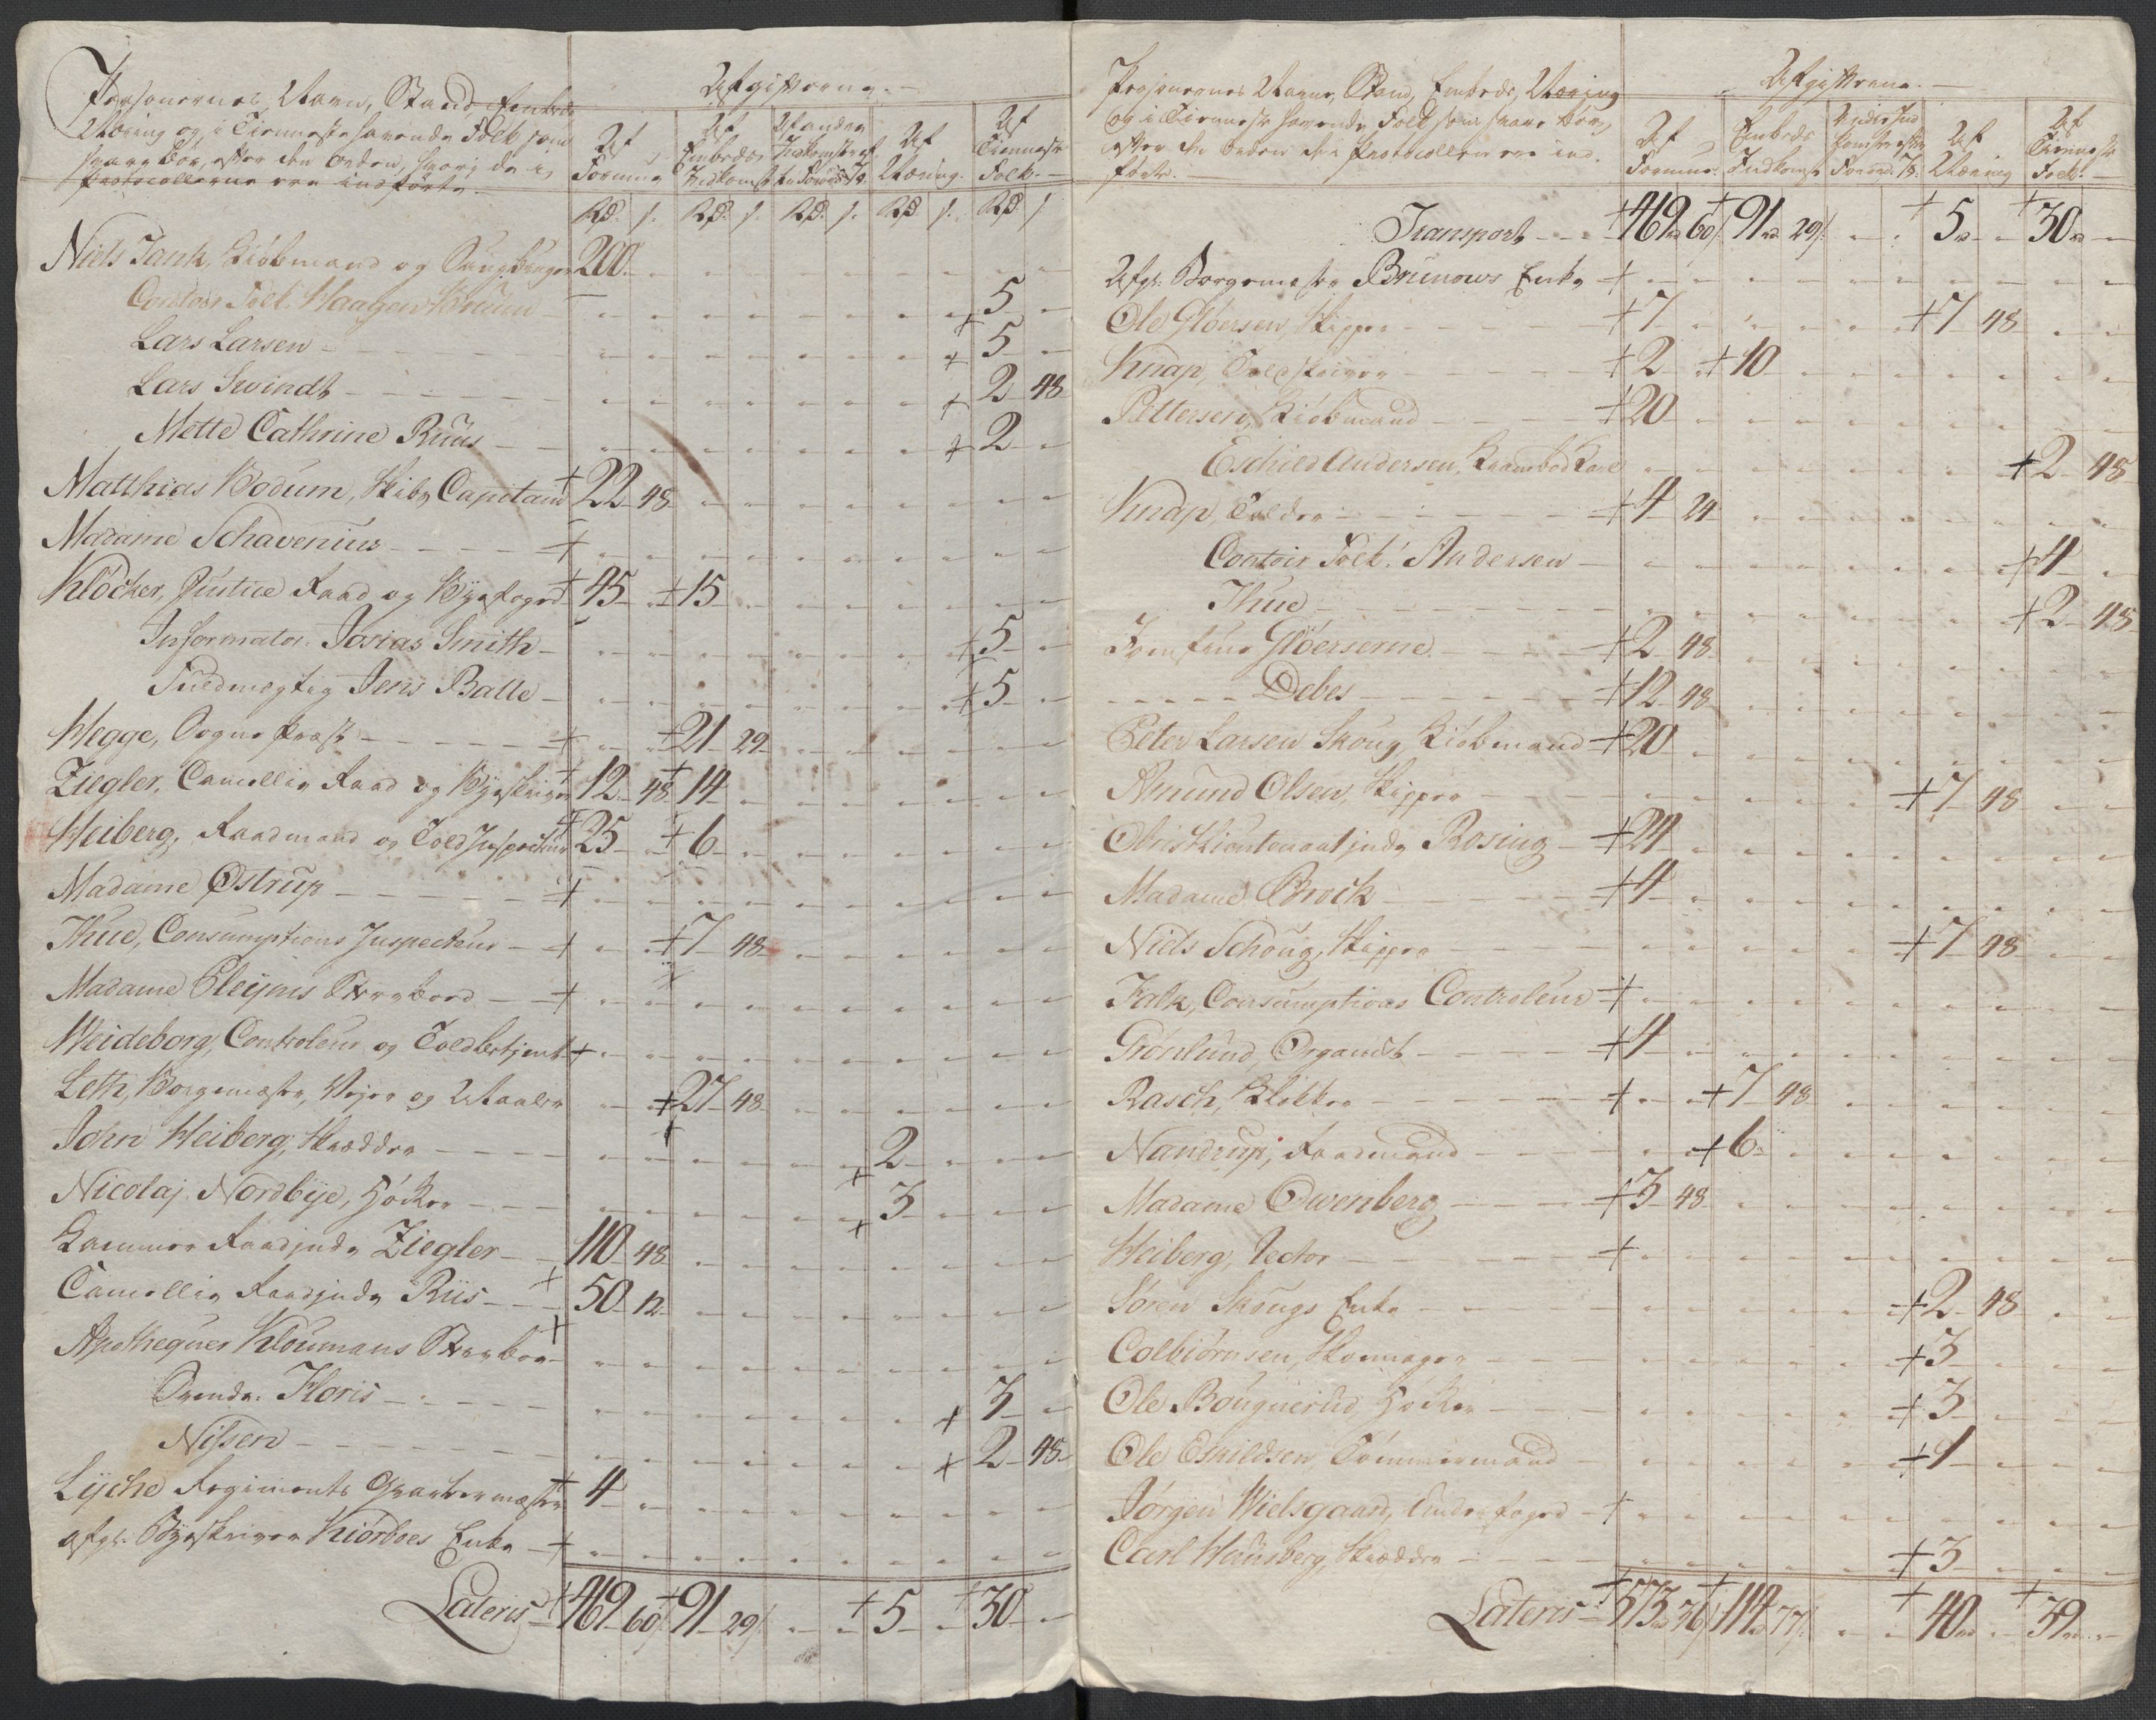 Personernes Navn, Stand, Embede
Næring og i Tienneste havende Folk som
svare bör, efter den Orden, hvori de i
Protocollerne ere indförte.
Afgifterne.
Af Formue
Af Embeds Indkomst
Af anden Indkomst
Af Næring.
Af Tienneste Folk.
Rd. s. Rd. s. Rd. s. Rd s. Rd s
Niels Tank, Kiöbmand og Saugbruger 200
Contoir Folk. Haagen Bruun 5
Lars Larsen 5
Lars Swindt 2 48
Mette Cathrine Ruus 2
Matthias Bodum, Skibs Capitain 22 48
Madame Schavenius
Klöcker, Justice Raad og Byefoged 45 15
Informator. Josias Smith 5
Fuldmegtig Jens Balle 5
Hegge, Sogne Præst 21 29
Ziegler, Cancellie Raad og Byeskriver 12 48 14
Heiberg, Raadmand og Told Inspecteur 25 6
Madame Østrup
Thue, Consumptions Inspecteur 7 48
Madame Eleyons Stervboed
Weideborg, Controleur og Toldbetjent
Leth, Borgemester, Vejer og Maaler 27 48
John Heiberg, Skrædder 2
Nicolaj Nordbye, Höker 3
Kammer Raadinde Ziegler 110 48
Cancellie Raadinde Riis 50 12
Apothequer Kloumans Stervboe
Svende. Floris 3
Nissen 2 48
Lyche Regiments Qvarteermester 4
Afgl. Byeskriver Kiorboes Enke
Lateris 469 60 91 29 5 30
Personernes Navne, Stand, Embede, Næring
og i Tienneste havende Folk som svare bör,
efter den Orden de i Protocollen ere ind-
förte.
Afgifterne.
Af Formue.
Embeds Indkomst
Af Næring
Af Tienneste Folk.
Transport 469 60 91 29 5 30
Afgl. Borgemester Brunows Enke
Ole Glöersen, Skipper 7 7 48
Knap, Toldskriver 2 10
Pettersen, Kiöbmand 20
Eschild Andersen, Krambod Karl 2 48
Knap, Tolder 4 24
Contoir Folk. Andersen 4
Thue 2 48
Jomfrue Glöerserne 2 48
Debes 12 48
Peter Larsen Skoug, Kiöbmand 20
Amund Olsen, Skipper 7 48
Obristlieutenantinde Rosing 24
Madame Brock 4
Niels Schoug, Skipper 7 48
Falk, Consumptions Controleur
Grönlund, Organist 4
Rasch, Klokker 7 48
Nandrup, Raadmand 6
Madame Owenberg 3 48
Heiberg, Rector
Sören Skougs Enke 2 48
Colbiörnsen, Skomager 3
Ole Bougnerud, Höker 3
Ole Eskildsen, Tömmermand 1
Jörgen Wielsgaard, Underfoged
Carl Hansberg, Skrædder 3
Lateris 573 36 114 77 40 39